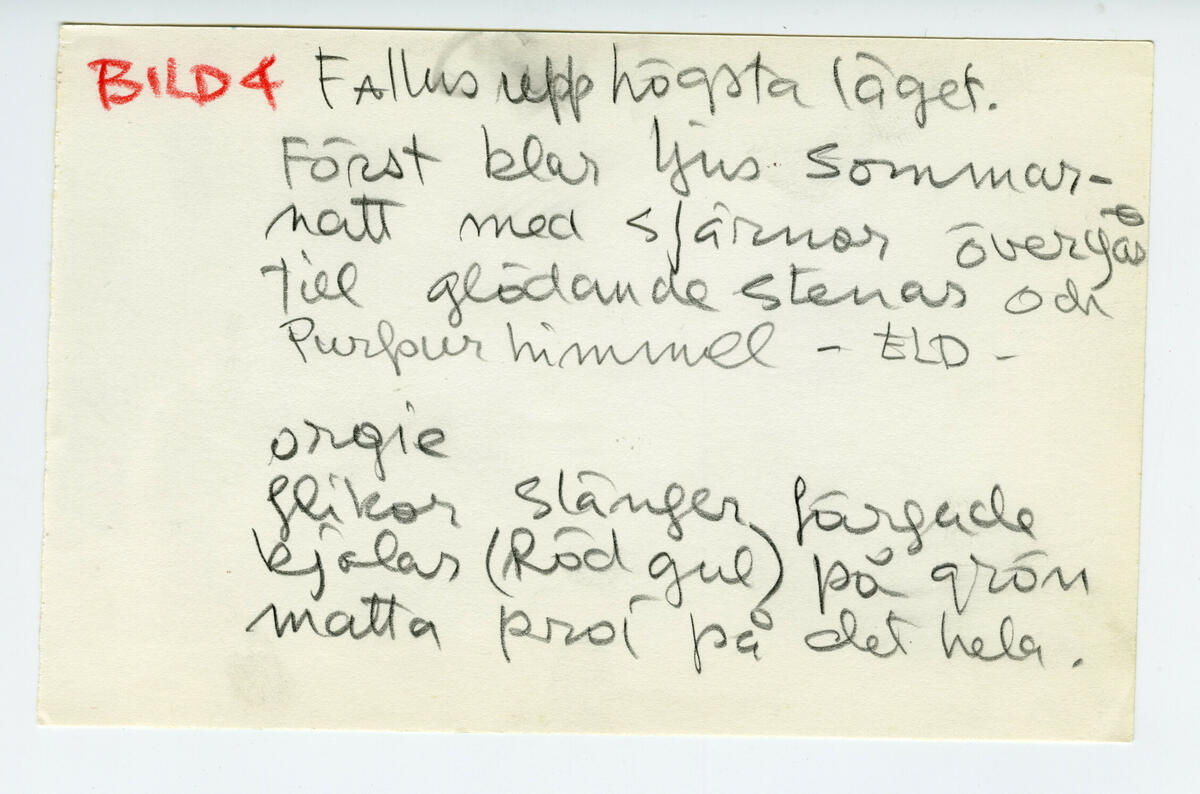 BILD 4 Fallus upp högsta läget.
Först klar ljus sommar-
natt med sjärnor övergår
till glödande stenar och
Purpur himmel - ELD -
orgie
flikor slänger färgade
kjolar (Röd gul) på grön
matta proj på det hela.